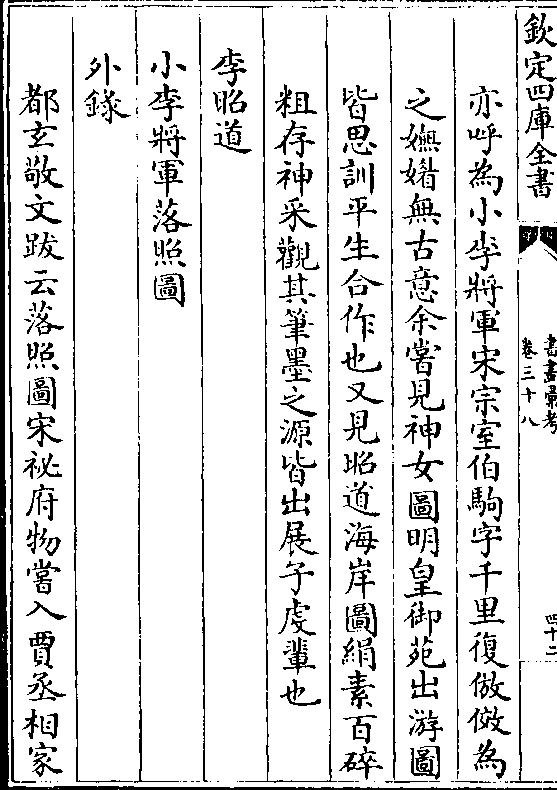 欽定四庫全書
書畫彙考
卷三十八
四十二
亦呼為小李將軍宋宗室伯駒字千里復倣傚為
之嫵媚無古意余嘗見神女圖明皇御苑出游圖
皆思訓平生合作也又見昭道海岸圖絹素百碎
粗存神采觀其筆墨之源皆出展子虔輩也
李昭道
小李將軍落照圖
外錄
都玄敬文跋云落照圖宋祕府物嘗入賈丞相家